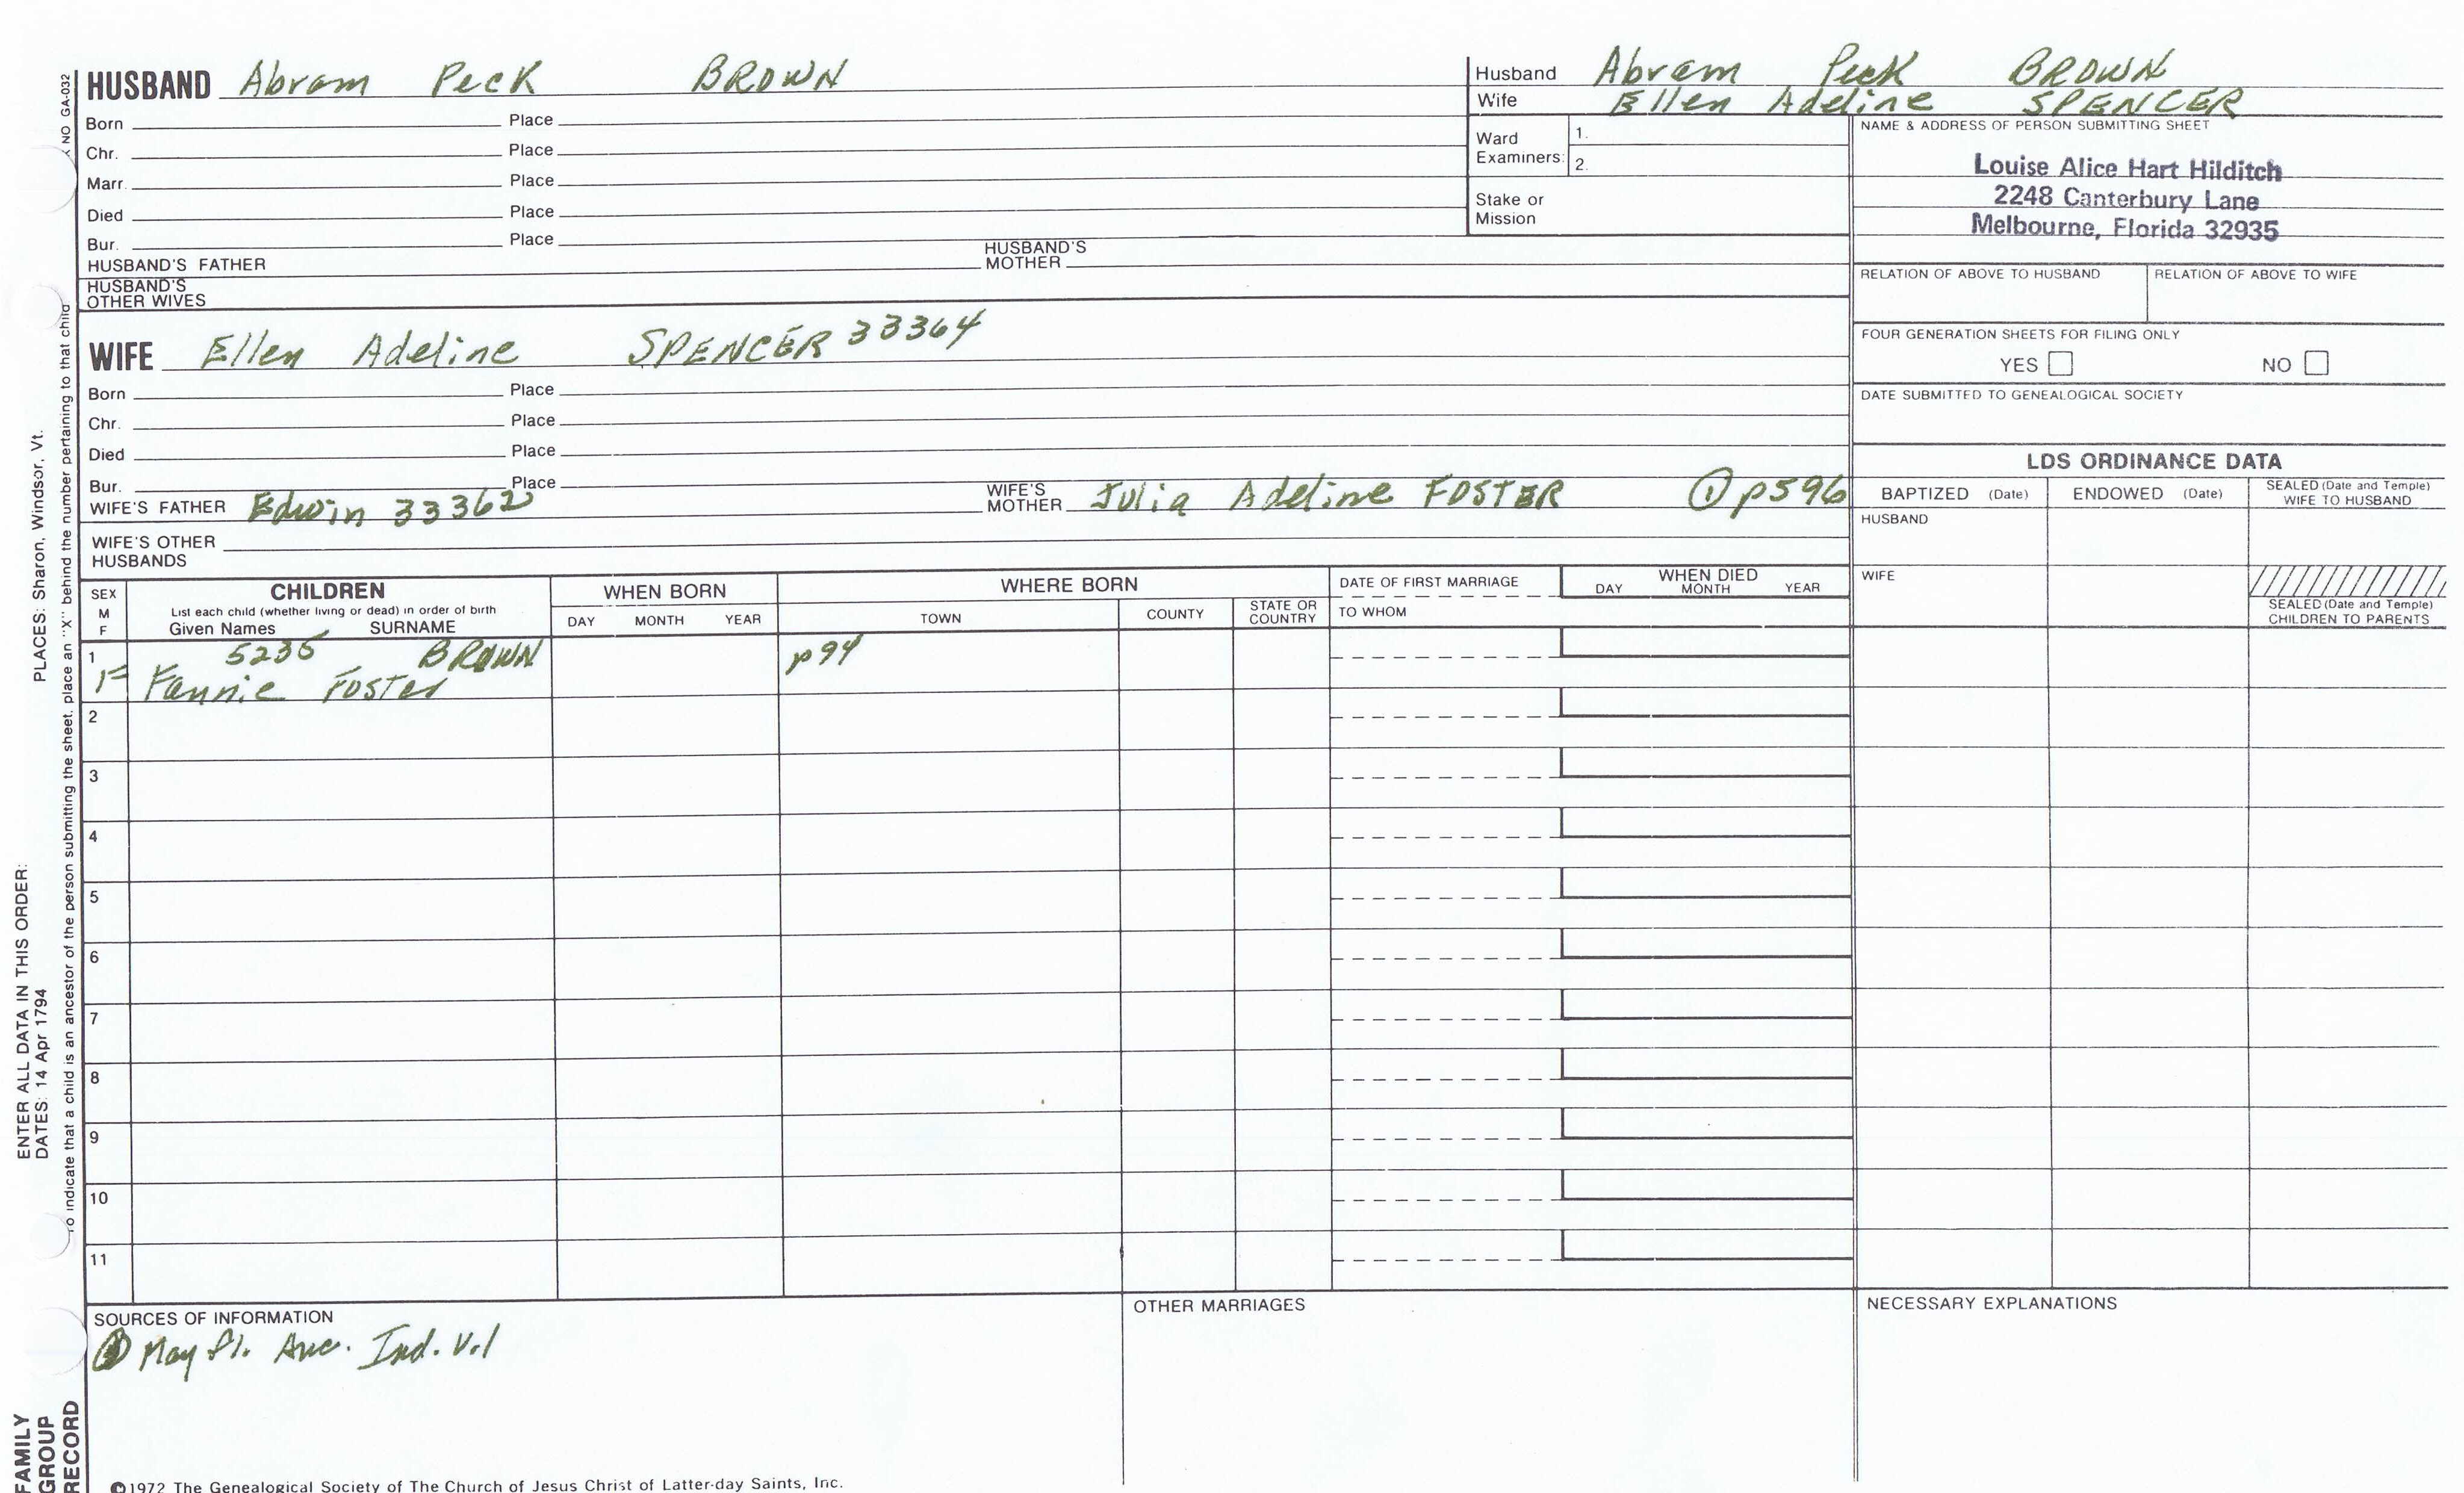 HUSBAND Abram Peck BROWN
Born Place
Chr. Place
Marr. Place
Died Place
Bur. Place
HUSBAND'S FATHER HUSBAND'S MOTHER
HUSBAND'S OTHER WIVES
WIFE Ellen Adeline SPENCER 33364
Born Place
Chr. Place
Died Place
Bur. Place
WIFE'S FATHER Edwin 33362 WIFE'S MOTHER Julia Adeline FOSTER ① p596
WIFE'S OTHER HUSBANDS
Husband Abram Peck BROWN
Wife Ellen Adeline SPENCER
Ward Examiners: 1.
2.
Stake or Mission
NAME & ADDRESS OF PERSON SUBMITTING SHEET
Louise Alice Hart Hilditch
2248 Canterbury Lane
Melbourne, Florida 32935
RELATION OF ABOVE TO HUSBAND RELATION OF ABOVE TO WIFE
FOUR GENERATION SHEETS FOR FILING ONLY
YES NO
DATE SUBMITTED TO GENEALOGICAL SOCIETY
LDS ORDINANCE DATA
BAPTIZED (Date) ENDOWED (Date) SEALED (Date and Temple) WIFE TO HUSBAND
HUSBAND
WIFE
SEALED (Date and Temple) CHILDREN TO PARENTS
SEX M F
CHILDREN
List each child (whether living or dead) in order of birth
Given Names SURNAME
WHEN BORN
DAY MONTH YEAR
WHERE BORN
TOWN COUNTY STATE OR COUNTRY
DATE OF FIRST MARRIAGE
TO WHOM
WHEN DIED
DAY MONTH YEAR
1 5235 BROWN p94
F Fannie Foster
2
3
4
5
6
7
8
9
10
11
SOURCES OF INFORMATION
May Fl. Ind. Vol
OTHER MARRIAGES
NECESSARY EXPLANATIONS
©1972 The Genealogical Society of The Church of Jesus Christ of Latter-day Saints, Inc.
NO GA-032
To indicate that a child is an ancestor of the person submitting the sheet, place an "X" behind the number pertaining to that child
ENTER ALL DATA IN THIS ORDER:
DATES: 14 Apr 1794 PLACES: Sharon, Windsor, Vt.
FAMILY
GROUP
RECORD